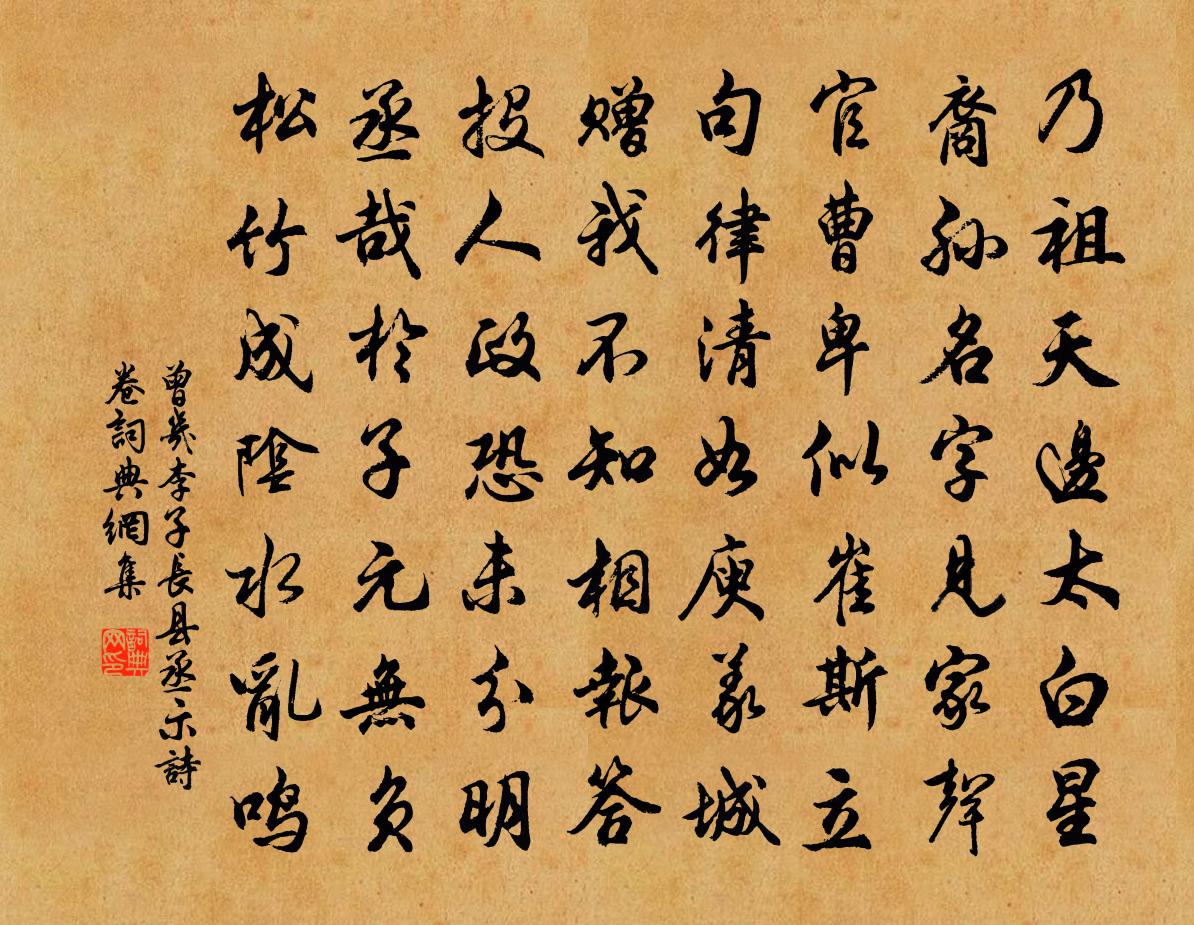 乃祖天邊太白星
裔孫名字見家聲
官曹卑似崔斯立
句律清如庾義城
贈我不知相報答
投人政恐未分明
丞哉於子元無負
松竹成陰水亂鳴
曾幾李子長县丞示詩
卷詞典網集
詞典网印